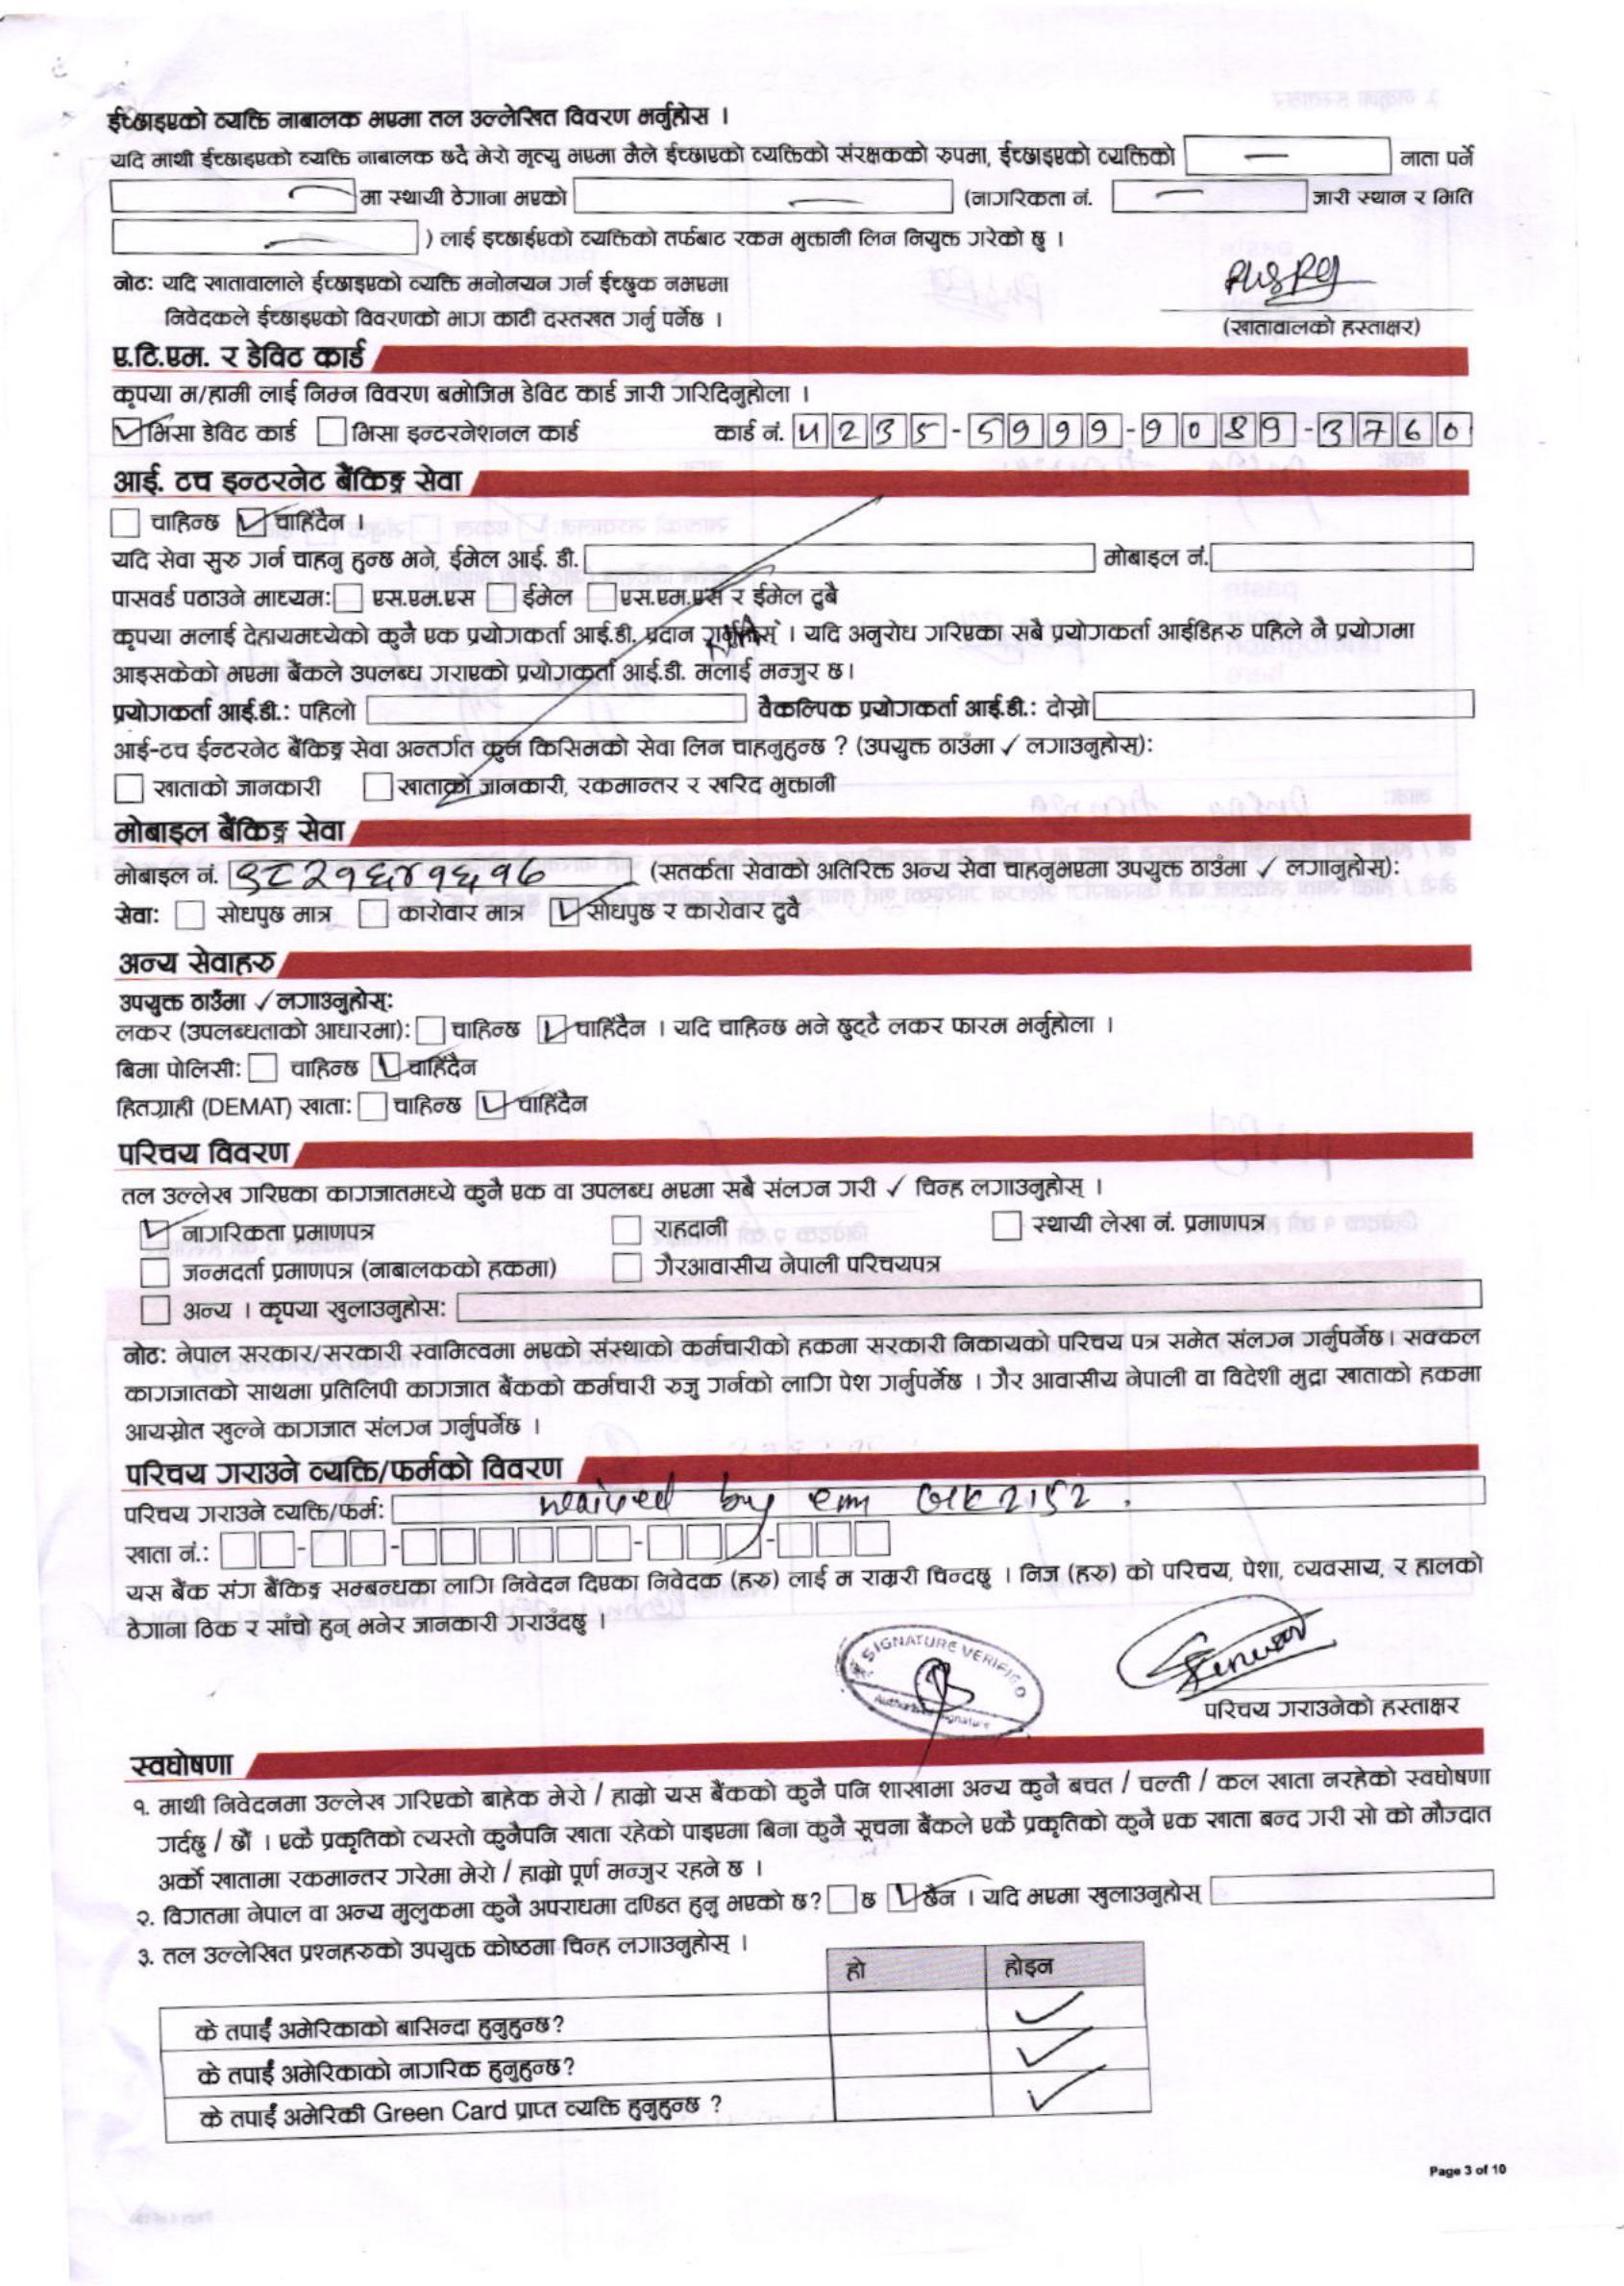 ईच्छाइएको व्यक्ति नाबालक भएमा तल उल्लेखित विवरण भर्नुहोस ।
यदि माथी ईच्छाइएको व्यक्ति नाबालक छदै मेरो मृत्यु भएमा मैले ईच्छाएको व्यक्तिको संरक्षकको रुपमा, ईच्छाइएको व्यक्तिको — नाता पर्ने
— मा स्थायी ठेगाना भएको — (नागरिकता नं. — जारी स्थान र मिति
— ) लाई इच्छाईएको व्यक्तिको तर्फबाट रकम भुक्तानी लिन नियुक्त गरेको छु ।
नोट: यदि खातावालाले ईच्छाइएको व्यक्ति मनोनयन गर्न ईच्छुक नभएमा
निवेदकले ईच्छाइएको विवरणको भाग काटी दस्तखत गर्नु पर्नेछ ।
(खातावालको हस्ताक्षर)
ए.टि.एम. र डेविट कार्ड
कृपया म/हामी लाई निम्न विवरण बमोजिम डेविट कार्ड जारी गरिदिनुहोला ।
✓ भिसा डेविट कार्ड भिसा इन्टरनेशनल कार्ड कार्ड नं. 4235-5999-9089-3760
आई. टच इन्टरनेट बैंकिङ्ग सेवा
चाहिन्छ ✓ चाहिंदैन ।
यदि सेवा सुरु गर्न चाहनु हुन्छ भने, ईमेल आई. डी. मोबाइल नं.
पासवर्ड पठाउने माध्यम: एस.एम.एस ईमेल एस.एम.एस र ईमेल दुबै
कृपया मलाई देहायमध्येको कुनै एक प्रयोगकर्ता आई.डी. प्रदान गर्नुहोस् । यदि अनुरोध गरिएका सबै प्रयोगकर्ता आईडिहरु पहिले नै प्रयोगमा
आइसकेको भएमा बैंकले उपलब्ध गराएको प्रयोगकर्ता आई.डी. मलाई मन्जुर छ।
प्रयोगकर्ता आई.डी.: पहिलो वैकल्पिक प्रयोगकर्ता आई.डी.: दोस्रो
आई-टच ईन्टरनेट बैंकिङ्ग सेवा अन्तर्गत कुन किसिमको सेवा लिन चाहनुहुन्छ ? (उपयुक्त ठाउँमा ✓ लगाउनुहोस्):
खाताको जानकारी खाताको जानकारी, रकमान्तर र खरिद भुक्तानी
मोबाइल बैंकिङ्ग सेवा
मोबाइल नं. ९८२१६४१६१७ (सतर्कता सेवाको अतिरिक्त अन्य सेवा चाहनुभएमा उपयुक्त ठाउँमा ✓ लगानुहोस्):
सेवा: सोधपुछ मात्र कारोवार मात्र ✓ सोधपुछ र कारोवार दुवै
अन्य सेवाहरु
उपयुक्त ठाउँमा ✓ लगाउनुहोस्:
लकर (उपलब्धताको आधारमा): चाहिन्छ ✓ चाहिंदैन । यदि चाहिन्छ भने छुट्टै लकर फारम भर्नुहोला ।
बिमा पोलिसी: चाहिन्छ ✓ चाहिंदैन
हितग्राही (DEMAT) खाता: चाहिन्छ ✓ चाहिंदैन
परिचय विवरण
तल उल्लेख गरिएका कागजातमध्ये कुनै एक वा उपलब्ध भएमा सबै संलग्न गरी ✓ चिन्ह लगाउनुहोस् ।
✓ नागरिकता प्रमाणपत्र राहदानी स्थायी लेखा नं. प्रमाणपत्र
जन्मदर्ता प्रमाणपत्र (नाबालकको हकमा) गैरआवासीय नेपाली परिचयपत्र
अन्य । कृपया खुलाउनुहोस:
नोट: नेपाल सरकार/सरकारी स्वामित्वमा भएको संस्थाको कर्मचारीको हकमा सरकारी निकायको परिचय पत्र समेत संलग्न गर्नुपर्नेछ। सक्कल
कागजातको साथमा प्रतिलिपी कागजात बैंकको कर्मचारी रुजु गर्नको लागि पेश गर्नुपर्नेछ । गैर आवासीय नेपाली वा विदेशी मुद्रा खाताको हकमा
आयस्रोत खुल्ने कागजात संलग्न गर्नुपर्नेछ ।
परिचय गराउने व्यक्ति/फर्मको विवरण
परिचय गराउने व्यक्ति/फर्म: waived by em 2152.
खाता नं.:
यस बैंक संग बैंकिङ्ग सम्बन्धका लागि निवेदन दिएका निवेदक (हरु) लाई म राम्ररी चिन्दछु । निज (हरु) को परिचय, पेशा, व्यवसाय, र हालको
ठेगाना ठिक र सांचो हुन् भनेर जानकारी गराउँदछु ।
SIGNATURE VERIFIED
Authorized Signature
परिचय गराउनेको हस्ताक्षर
स्वघोषणा
१. माथी निवेदनमा उल्लेख गरिएको बाहेक मेरो / हाम्रो यस बैंकको कुनै पनि शाखामा अन्य कुनै बचत / चल्ती / कल खाता नरहेको स्वघोषणा
गर्दछु / छौं । एकै प्रकृतिको त्यस्तो कुनैपनि खाता रहेको पाइएमा बिना कुनै सूचना बैंकले एकै प्रकृतिको कुनै एक खाता बन्द गरी सो को मौज्दात
अर्को खातामा रकमान्तर गरेमा मेरो / हाम्रो पूर्ण मन्जुर रहने छ ।
२. विगतमा नेपाल वा अन्य मुलुकमा कुनै अपराधमा दण्डित हुनु भएको छ? छ ✓ छैन । यदि भएमा खुलाउनुहोस्
३. तल उल्लेखित प्रश्नहरुको उपयुक्त कोष्ठमा चिन्ह लगाउनुहोस् ।
हो होइन
के तपाईं अमेरिकाको बासिन्दा हुनुहुन्छ? ✓
के तपाईं अमेरिकाको नागरिक हुनुहुन्छ? ✓
के तपाईं अमेरिकी Green Card प्राप्त व्यक्ति हुनुहुन्छ ? ✓
Page 3 of 10